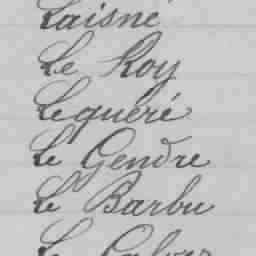 Laisné
Le Roy
Lequéré
Le Gendre
Le Barbu
Le